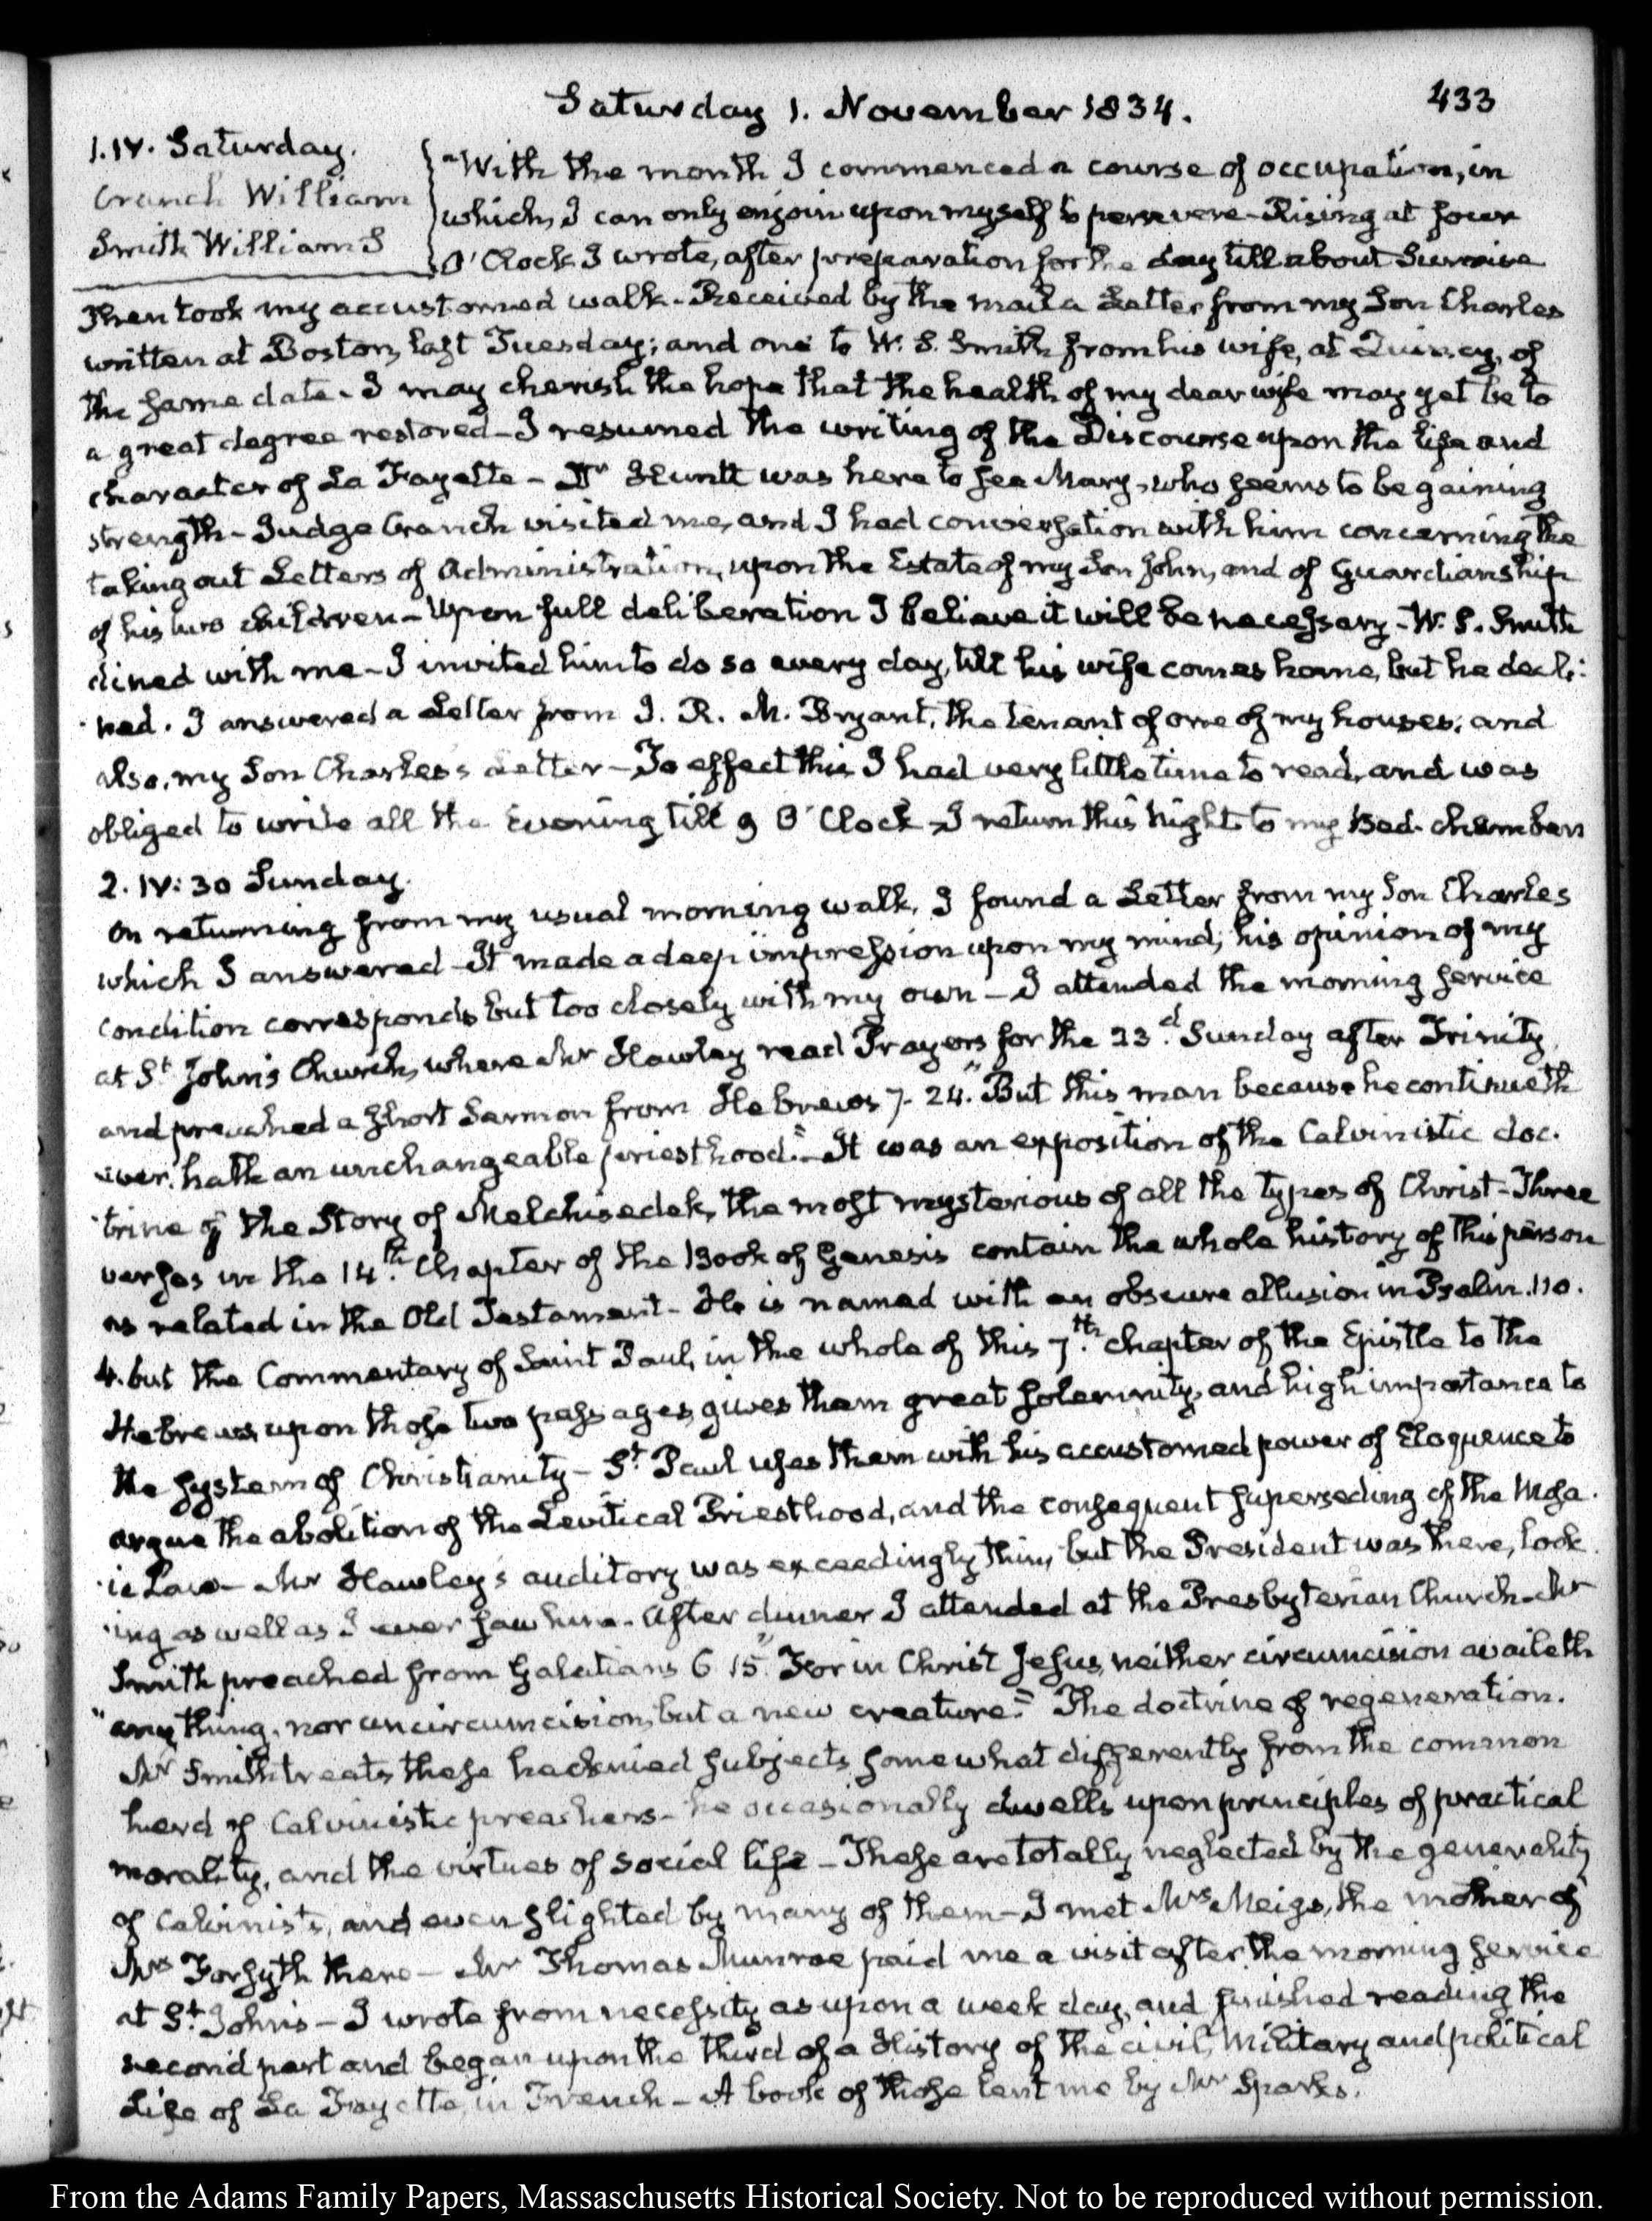 Saturday 1. November 1834.
433
1. IV. Saturday.
Cranch William
Smith William S
With the month I commenced a course of occupation, in
which, I can only enjoin upon myself to persevere - Rising at four
O'Clock I wrote, after preparation for the day till about Sunrise
Then took my accustomed walk - Received by the mail a Letter from my Son Charles
written at Boston, last Tuesday; and one to W. S. Smith from his wife, at Quincy, of
the same date. I may cherish the hope that the health of my dear wife may yet be to
a great degree restored - I resumed the writing of the Discourse upon the life and
character of La Fayette - Dr Huntt was here to see Mary, who seems to be gaining
strength - Judge Cranch visited me, and I had conversation with him concerning the
taking out Letters of Administration, upon the Estate of my Son John, and of Guardianship
of his two children - Upon full deliberation I believe it will be necessary - W. S. Smith
dined with me - I invited him to do so every day, till his wife comes home, but he decli:
ned. I answered a Letter from J. R. M. Bryant, the tenant of one of my houses; and
also, my Son Charles's Letter - To effect this I had very little time to read, and was
obliged to write all the Evening till 9 O'Clock - I return this night to my Bed-chamber
2. IV: 30 Sunday.
On returning from my usual morning walk, I found a Letter from my Son Charles
which I answered - It made a deep impression upon my mind; his opinion of my
condition corresponds but too closely with my own - I attended the morning service
at St. John's Church, where Mr Hawley read Prayers for the 23d. Sunday after Trinity,
and preached a short Sermon from Hebrews 7. 24. "But this man because he continueth
ever, hath an unchangeable priesthood." - It was an exposition of the Calvinistic doc.
trine of the Story of Melchisedek, the most mysterious of all the types of Christ - Three
verses in the 14th. Chapter of the Book of Genesis contain the whole history of this person
as related in the Old Testament - He is named with an obscure allusion in Psalm. 110.
4. but the Commentary of Saint Paul, in the whole of this 7th. chapter of the Epistle to the
Hebrews, upon those two passages, gives them great solemnity, and high importance to
the system of Christianity - St. Paul uses them with his accustomed power of Eloquence to
argue the abolition of the Levitical Priesthood, and the consequent superseding of the Mosa.
ic Law - Mr Hawley's auditory was exceedingly thin, but the President was there, look.
ing as well as I ever saw him - After dinner I attended at the Presbyterian Church - Mr
Smith preached from Galatians 6 15. "For in Christ Jesus, neither circumcision availeth
"any thing, nor uncircumcision, but a new creature." The doctrine of regeneration.
Mr Smith treats these hacknied subjects somewhat differently from the common
herd of Calvinistic preachers - he occasionally dwells upon principles of practical
morality, and the virtues of social life - These are totally neglected by the generality
of Calvinists, and even slighted by many of them - I met Mrs Meigs, the mother of
Mrs Forsyth there - Mr Thomas Munroe paid me a visit after the morning service
at St. John's - I wrote from necessity as upon a week day, and finished reading the
second part and began upon the third of a History of the civil, Military and political
Life of La Fayette, in French - A book of those lent me by Mr Sparks.
From the Adams Family Papers, Massaschusetts Historical Society. Not to be reproduced without permission.